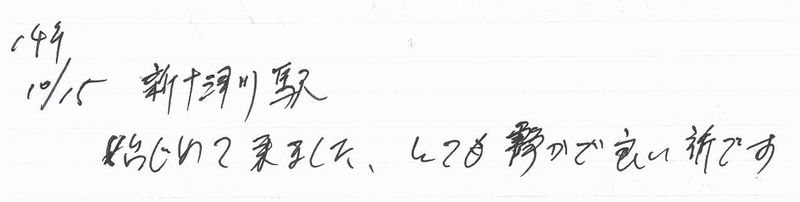 14年
10/15 新十津川駅
始じめて来ました、とても静かで良い所です